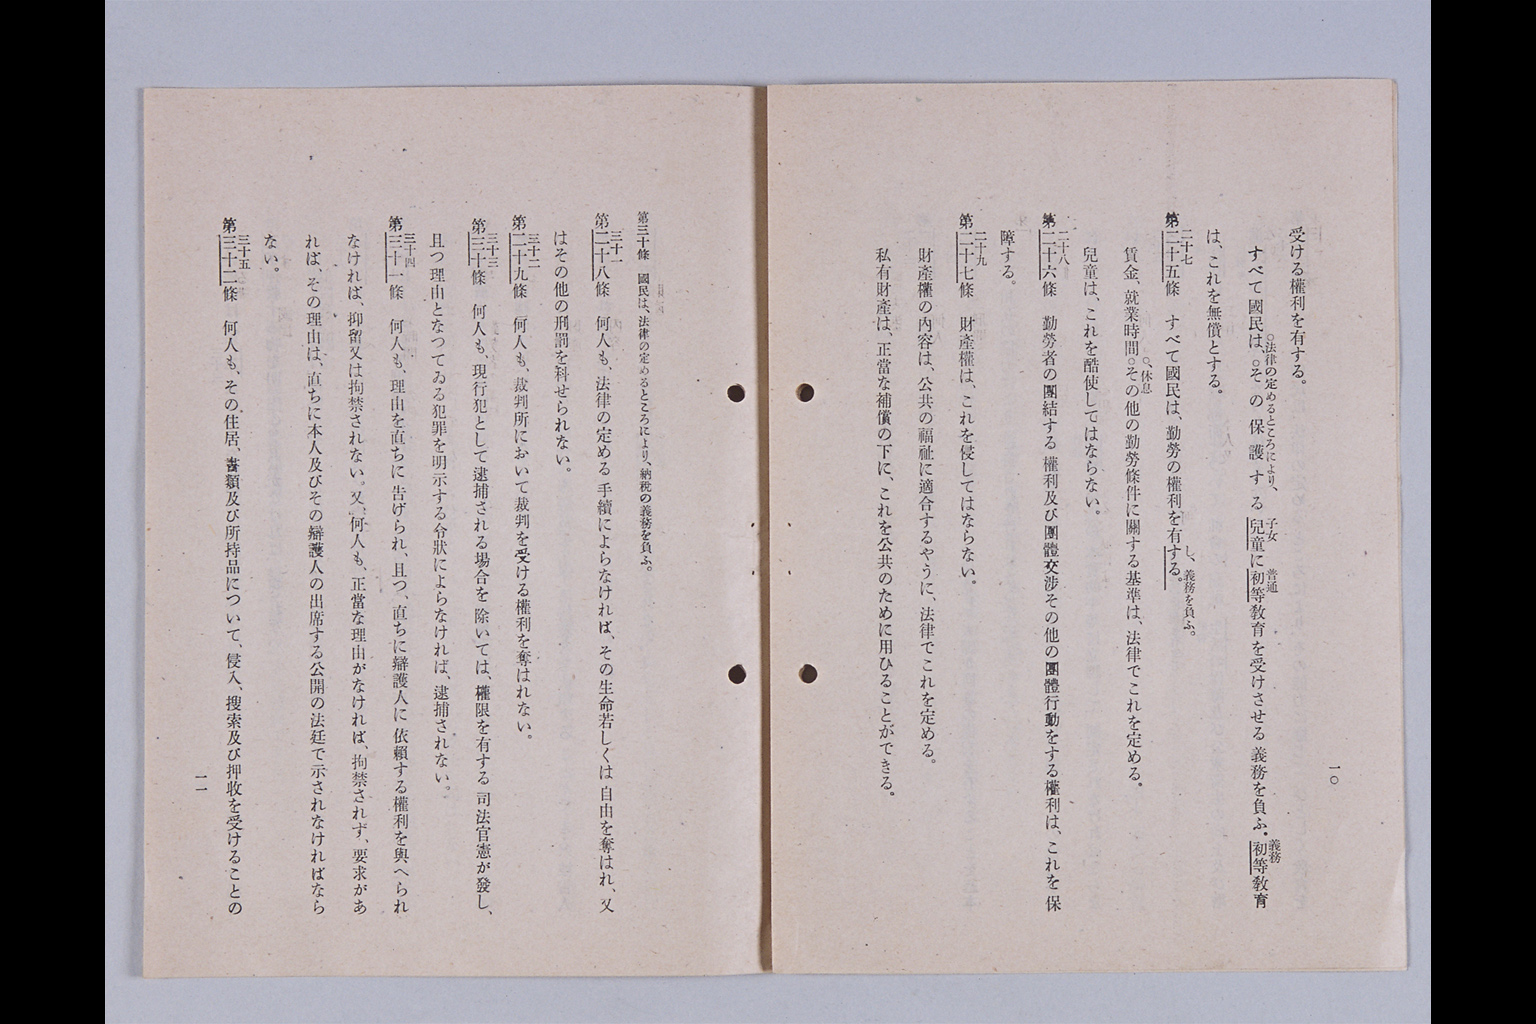 受ける權利を有する。
○法律の定めるところにより、
子女
普通
義務
すべて國民は、○その保護する兒童に初等教育を受けさせる義務を負ふ。初等教育
は、これを無償とする。
二十七
し、義務を負ふ。
第二十五條　すべて國民は、勤勞の權利を有する。
○、休息
賃金、就業時間○その他の勤勞條件に關する基準は、法律でこれを定める。
兒童は、これを酷使してはならない。
二十八
第二十六條　勤勞者の團結する權利及び團體交涉その他の團體行動をする權利は、これを保
障する。
二十九
第二十七條　財產權は、これを侵してはならない。
財產權の內容は、公共の福祉に適合するやうに、法律でこれを定める。
私有財產は、正當な補償の下に、これを公共のために用ひることができる。
一〇
第三十條　國民は、法律の定めるところにより、納稅の義務を負ふ。
三十一
第二十八條　何人も、法律の定める手續によらなければ、その生命若しくは自由を奪はれ、又
はその他の刑罰を科せられない。
三十二
第二十九條　何人も、裁判所において裁判を受ける權利を奪はれない。
三十三
第三十條　何人も、現行犯として逮捕される場合を除いては、權限を有する司法官憲が發し、
且つ理由となつてゐる犯罪を明示する令狀によらなければ、逮捕されない。
三十四
第三十一條　何人も、理由を直ちに告げられ、且つ、直ちに辯護人に依賴する權利を與へられ
なければ、抑留又は拘禁されない。又、何人も、正當な理由がなければ、拘禁されず、要求があ
れば、その理由は、直ちに本人及びその辯護人の出席する公開の法廷で示されなければなら
ない。
三十五
第三十二條　何人も、その住居、書類及び所持品について、侵入、搜索及び押收を受けることの
一一